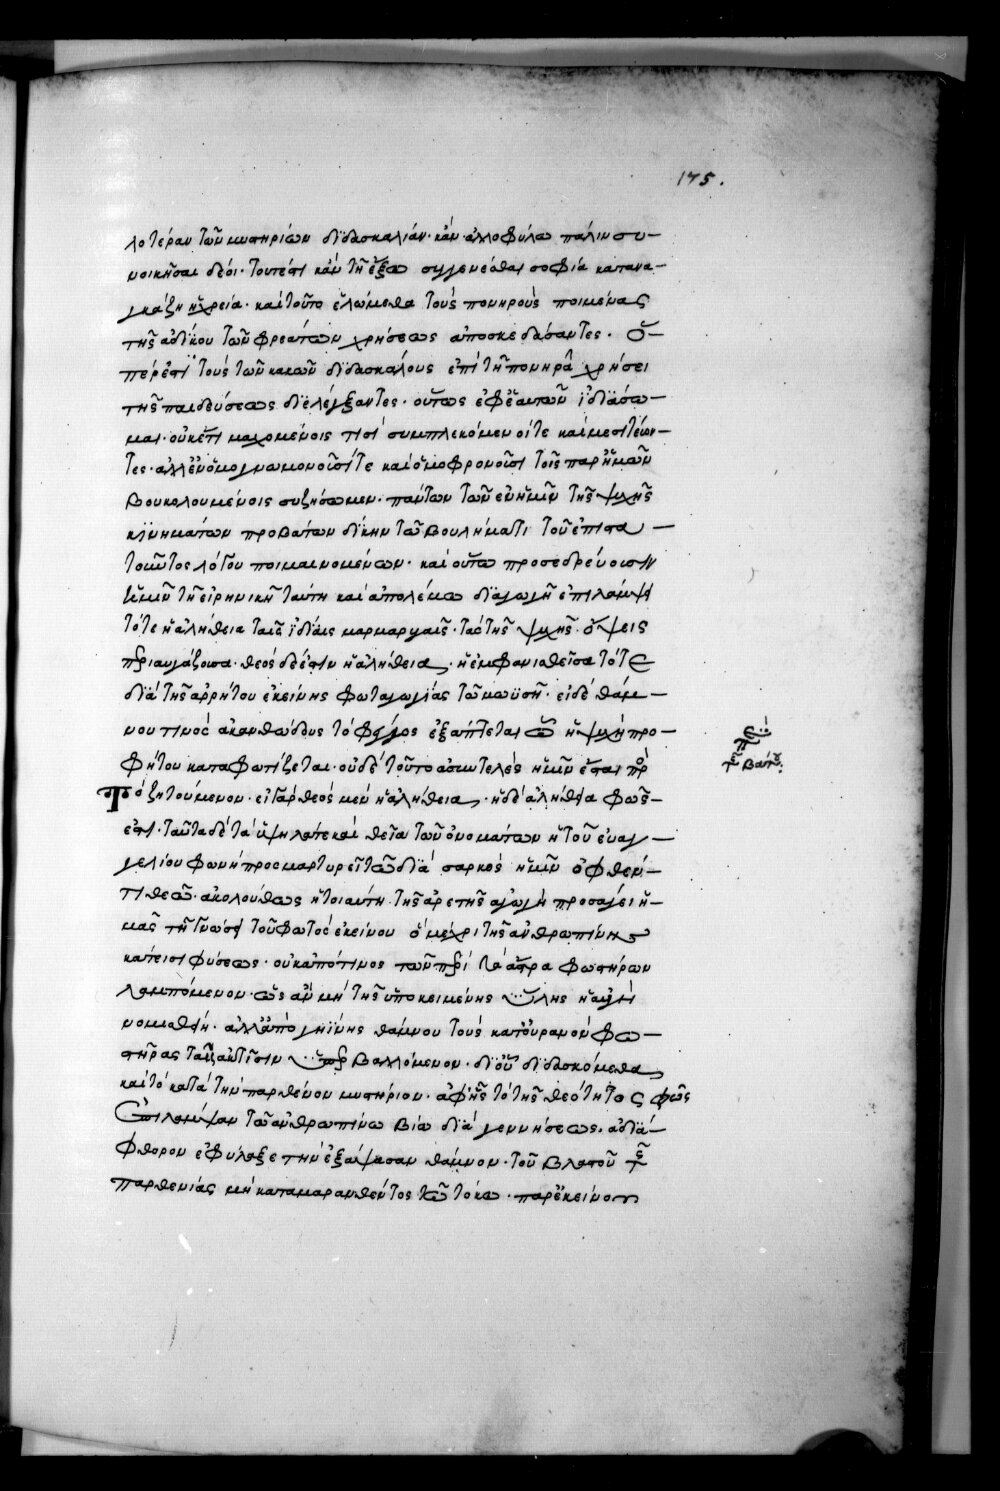 175.
λοτέραν τῶν μυστηρίων διδασκαλίαν· κἂν ἀλλοφύλω πάλιν συ-
νοικῆσαι δέοι· τουτέστι κἂν τῆ ἔξω συγγενέσθαι σοφία καταναγ-
γκάζη ἡ χρεία· καὶ τοῦτο ἑλώμεθα τοὺς πονηροὺς ποιμένας
τῆς ἀδίκου τῶν φρεάτων χρήσεως ἀποσκεδάσαντες· ὅ-
πέρ ἐστι τοὺς τῶν κακῶν διδασκάλους ἐπὶ τῆ πονηρᾶ χρήσει
τῆς παιδεύσεως διελέγξαντες· οὕτως ἐφ' ἑαυτῶν ἰδιάσω-
μαι· οὐκέτι μαχομένοις τισὶ συμπλεκόμενοί τε καὶ μεσιτεύον-
τες· ἀλλ' ἐν ὁμογνωμονοῦσί τε καὶ ὁμοφρονοῦσι τοῖς παρ' ἡμῶν
βουκολουμένοις συζήσωμεν· πάντων τῶν ἐν ἡμῖν τῆς ψυχῆς
κινημάτων προβάτων δίκην τῶ βουλήματι τοῦ ἐπιστα-
τοῦντος λόγου ποιμαινομένων· καὶ οὕτω προσεδρεύουσιν
ἡμῖν τῆ εἰρηνικῆ ταύτη καὶ ἀπολέμω διαγωγῆ ἐπιλάμψει
τότε ἡ ἀλήθεια ταῖς ἰδίαις μαρμαρυγαῖς· τὰς τῆς ψυχῆς ὄψεις
περιαυγάζουσα· θεὸς δέ ἐστιν ἡ ἀλήθεια, ἡ ἐμφανισθεῖσα τότε
διὰ τῆς ἀρρήτου ἐκείνης φωταγωγίας τῶ μωϋσῆ· εἰ δὲ θάμ-
νου τινὸς ἀκανθώδους τὸ φέγγος ἐξάπτεται ὧ ἡ ψυχὴ προ-
φήτου καταφωτίζεται· οὐδὲ τοῦτο ἀσυντελὲς ἡμῖν ἔσται πρὸς
τὸ ζητούμενον· εἰ γὰρ θεὸς μὲν ἡ ἀλήθεια, ἡ δὲ ἀλήθεια φῶς
ἐστι· ταῦτα δὲ τὰ ὑψηλά τε καὶ θεῖα τῶν ὀνομάτων ἡ τοῦ εὐαγ-
γελίου φωνὴ προσμαρτυρεῖ τῶ διὰ σαρκὸς ἡμῖν ὀφθέν-
τι θεῶ· ἀκολούθως ἡ τοιαύτη τῆς ἀρετῆς ἀγωγὴ προσάγει ἡ-
μᾶς τῆ γνώσει τοῦ φωτὸς ἐκείνου ὃ μέχρι τῆς ἀνθρωπίνης
κάτεισι φύσεως· οὐκ ἀπό τινος τῶν περὶ τὰ ἄστρα φωστήρων
λαμπόμενον· ὡς ἂν μὴ τῆς ὑποκειμένης ὕλης ἡ αὐγὴ
νομισθῆ· ἀλλ' ἀπὸ γηΐνης θάμνου τοὺς κατ' οὐρανὸν φω-
στῆρας ταῖς ἀκτῖσιν ὑπερβαλλόμενον· δι' οὗ διδασκόμεθα
καὶ τὸ κατὰ τὴν παρθένον μυστήριον· ἀφ' ἧς τὸ τῆς θεότητος φῶς
ἐπιλάμψαν τῶ ἀνθρωπίνω βίω διὰ γεννήσεως· ἀδιά-
φθορον ἐφύλαξε τὴν ἐξάψασαν θάμνον· τοῦ βλαστοῦ τῆς
παρθενίας μὴ καταμαρανθέντος τῶ τόκω· παρ' ἐκείνου
τῆς βάτου: